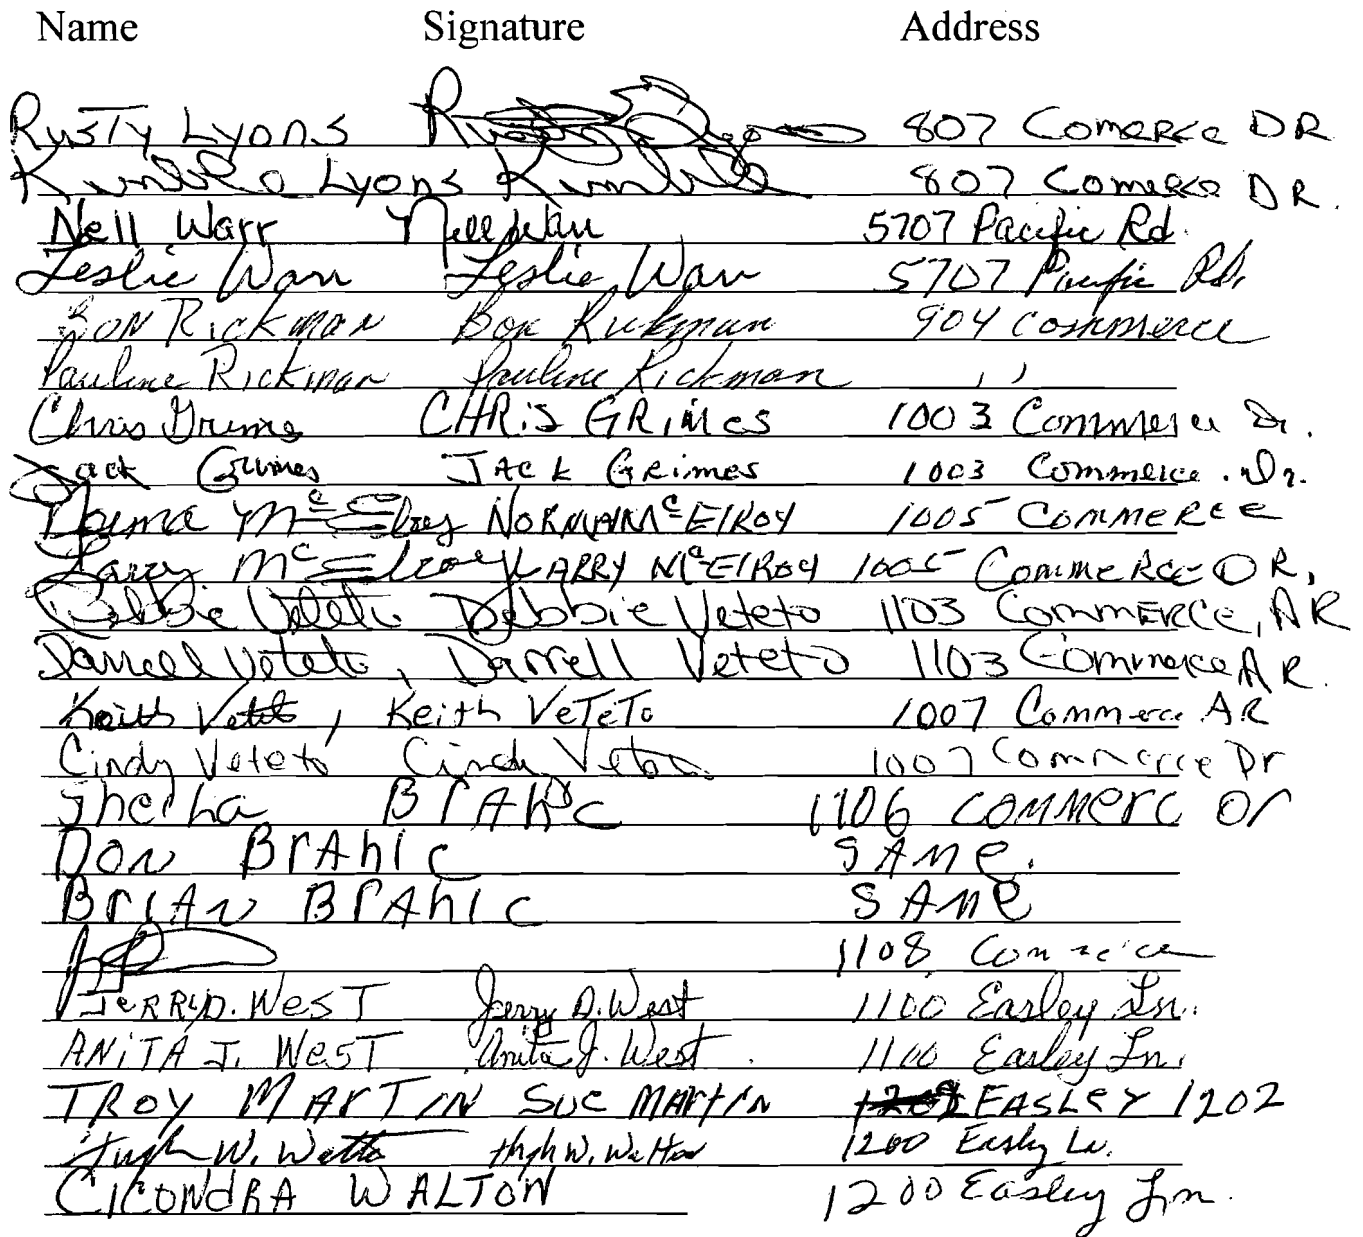 Name Signature Address
Rusty Lyons Rusty Lyons 807 Comerce DR
Lyons 807 Comerce DR.
Nell Warr Nell Warr 5707 Pacific Rd.
Leslie Warr Leslie Warr 5707 Pacific Rd.
Bon Rickman Bon Rickman 904 Commerce
Pauline Rickman Pauline Rickman ,,
Chris Grimes CHRiS GRiMes 1003 Commerce Dr.
Jack Grimes JAck GRimes 1003 Commerce. Dr.
Norma McElroy NORMA McElROY 1005 COMMERCE
Larry McElroy LARRY McElRoy 1005 Commerce DR,
Debbie Veteto Debbie Veteto 1103 COMMERCe, AR
Darrell Veteto, Darrell Veteto 1103 Commerce AR.
Keith Veteto, Keith VeTeTo 1007 Commerce AR
Cindy Veteto Cindy Veteto 1007 Commerce Dr
BrAhic 1106 COMMerc Dr
DON BrAhIc SAMe.
BrIAN BrAhIc SAMe
1108 Commerce
JeRRy D. WesT Jerry D. West 1100 Easley Ln.
ANiTA J. WesT Anita J. West 1100 Easley Ln.
TROY MArTIN Sue MArtIN EASLeY 1202
Hugh W. Walton Hugh W. Walton 1200 Easley Ln.
CICONdRA WALTON 1200 Easley Ln.